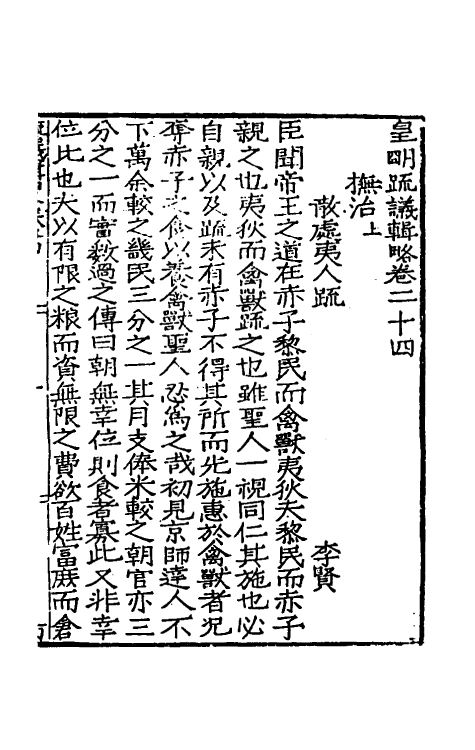 皇明疏議輯略卷二十四
撫治上
散處夷人疏 李賢
臣聞帝王之道在赤子黎民而禽獸夷狄夫黎民而赤子
親之也夷狄而禽獸疏之也雖聖人一視同仁其施也必
自親以及疏未有赤子不得其所而先施惠於禽獸者況
奪赤子之食以養禽獸聖人忍為之哉初見京師達人不
下萬余較之畿民三分之一其月支俸米較之朝官亦三
分之一而實數過之傳曰朝無幸位則食者寡此又非幸
位比也夫以有限之粮而資無限之費欲百姓富庶而倉